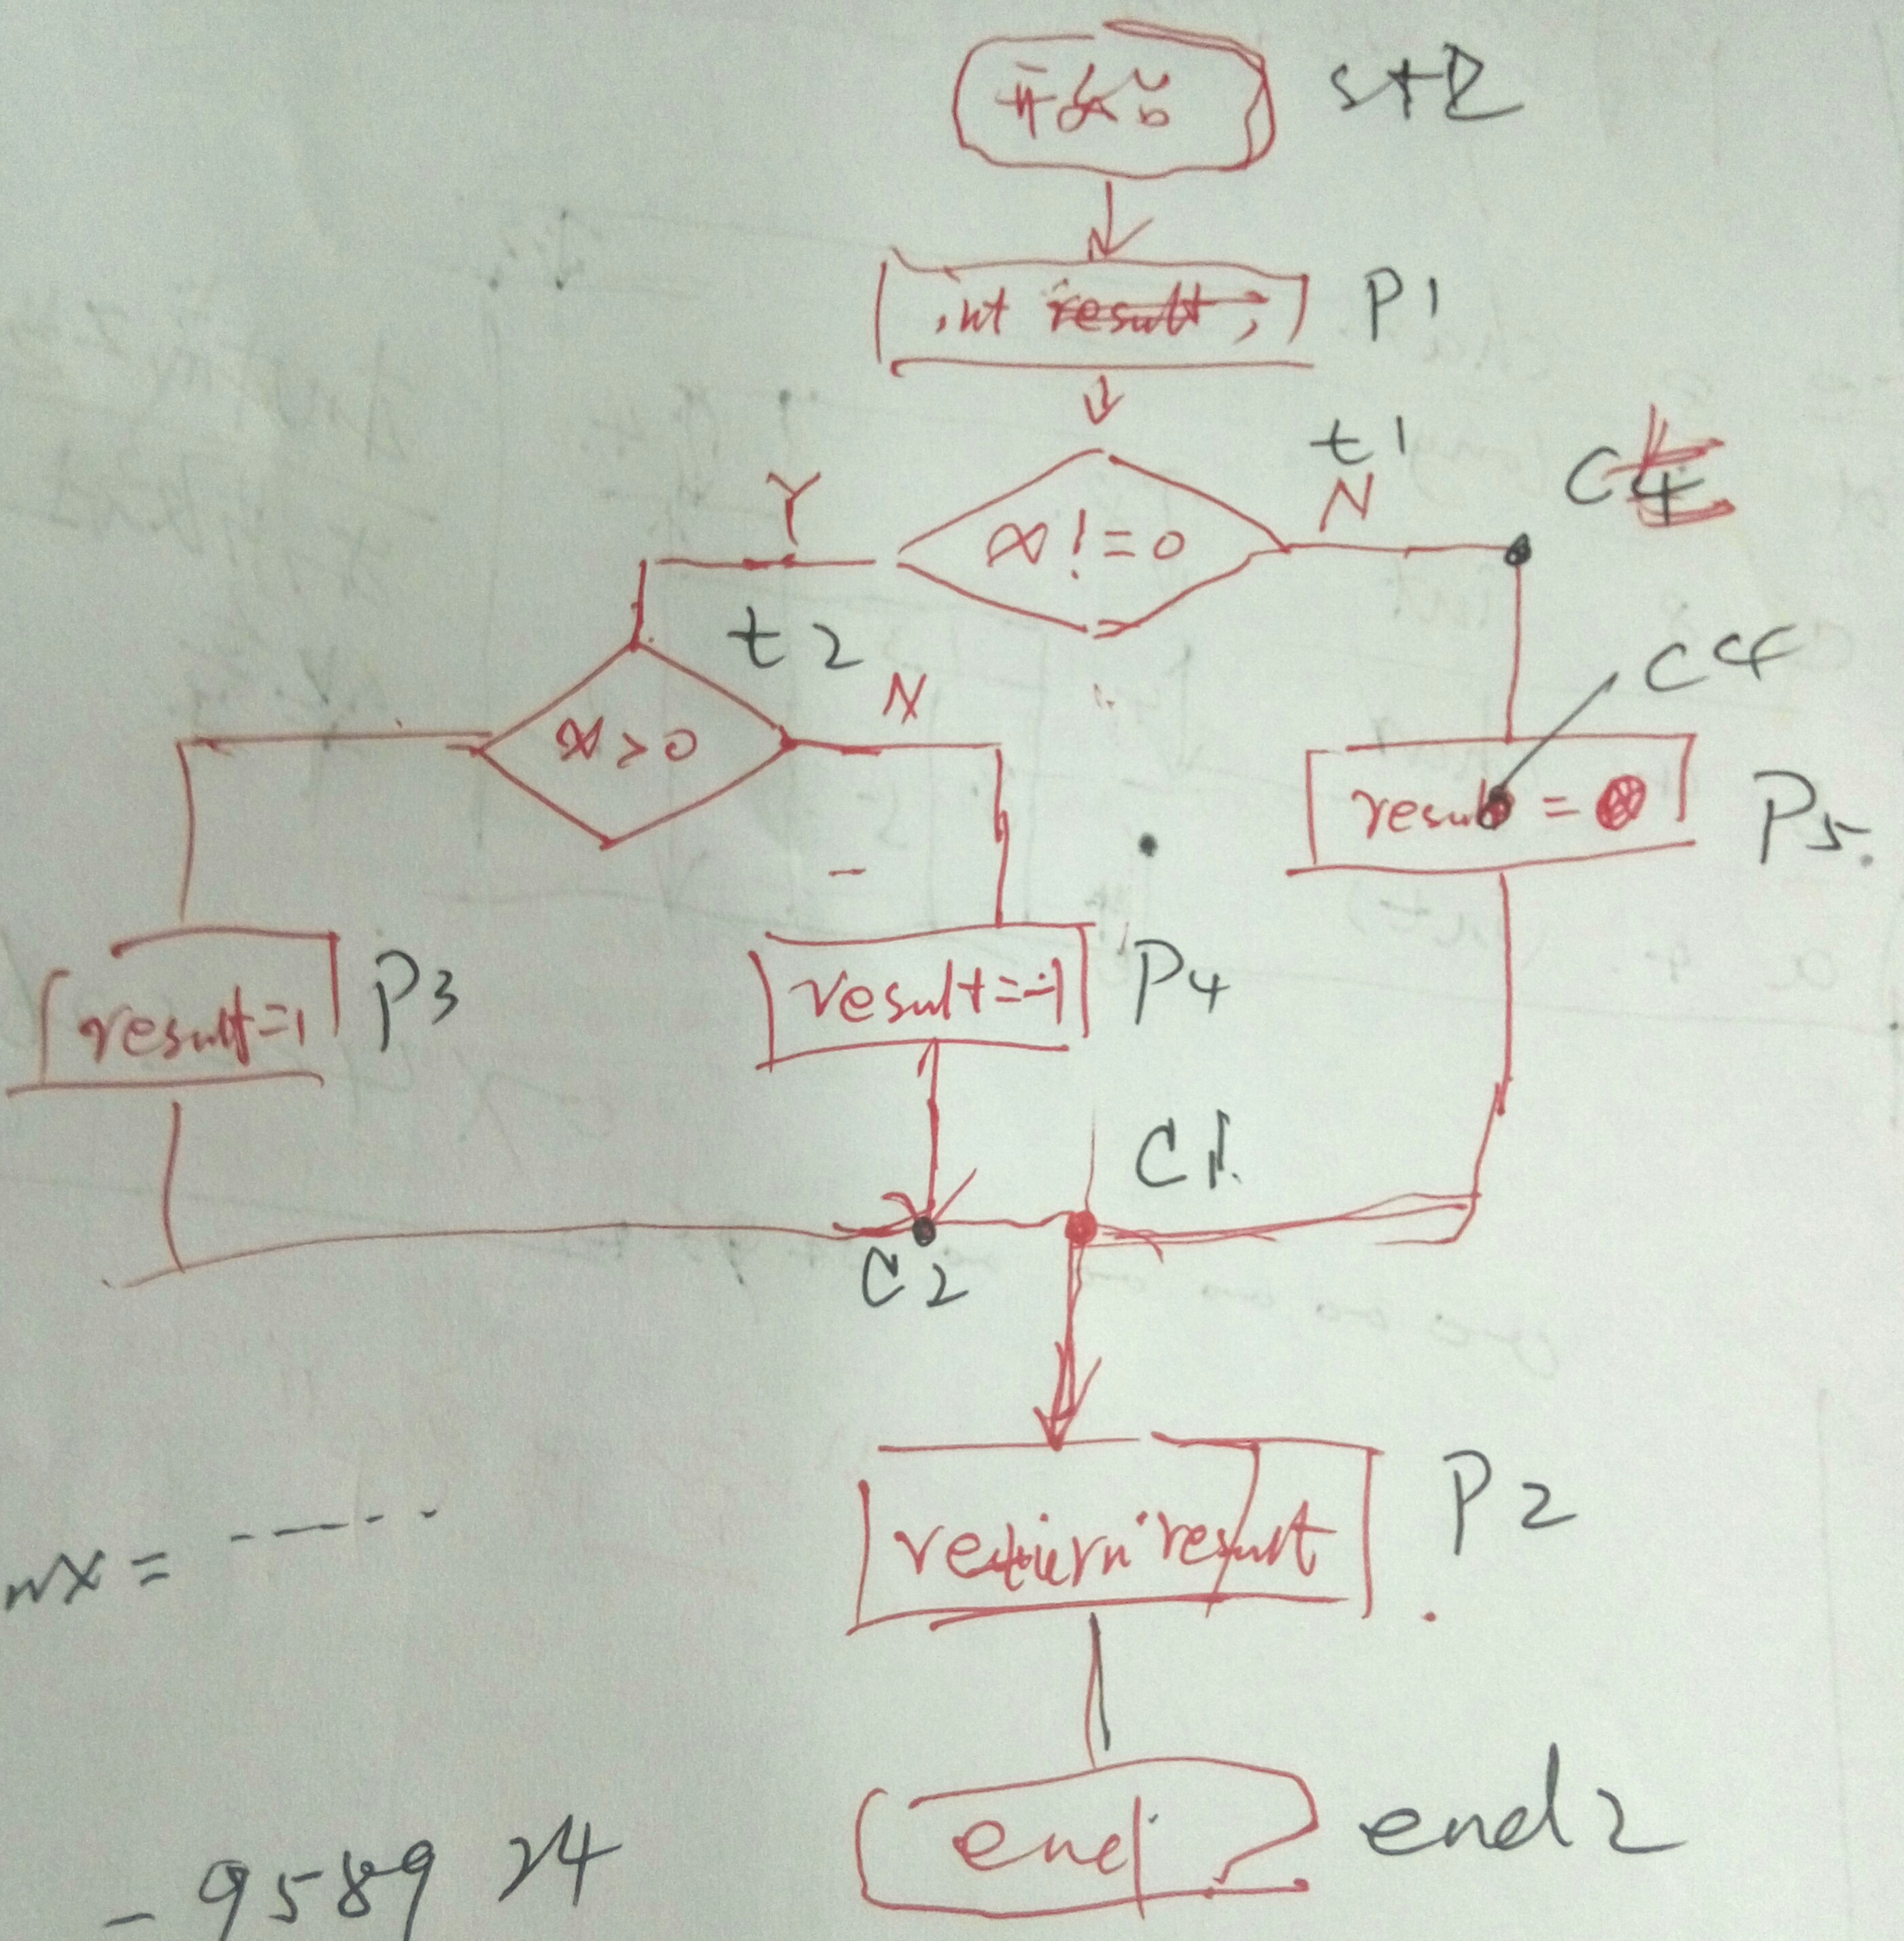 开始
int result;
P1
t1
Y
N
x!=0
t2
C4
N
x>0
result =
P5.
result=1
P3
result=-1
P4
C1.
C2
return result
P2
mx = -----
end
end2
- 9589 24